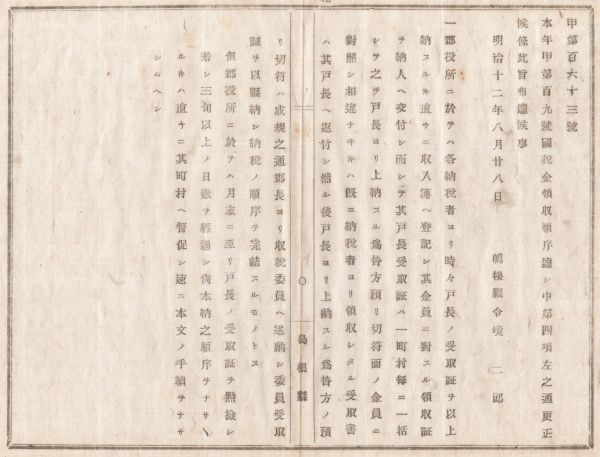 甲第百六十三號
本年甲第百九號國税金領収順序達シ中第四項左之通更正
候條此旨布達候事
明治十二年八月廿八日　　嶋根縣令境　二郎
一郡役所ニ於テハ各納税者ヨリ時々戸長ノ受取証ヲ以上
納スルキ直チニ収入簿ヘ登記シ其金員ニ對スル領収証
ヲ納人ヘ交付シ而シテ其戸長受取証ハ一町村毎ニ一括
シテ之ヲ戸長ヨリ上納スル爲替方預リ切符面ノ金員ニ
對照シ相違ナキキハ既ニ納税者ヨリ領収シタル受取書
ハ其戸長ヘ返付シ然ル後戸長ヨリ上納スル爲替方ノ預
島根縣
リ切符ハ成規之通郡長ヨリ収税委員ヘ送納シ委員受取
証ヲ以縣納シ納税ノ順序ヲ完結スルモノトス
但郡役所ニ於テハ月末ニ至リ戸長ノ受取証ヲ點撿シ
若シ三旬以上ノ日数ヲ經過シ尚本納之順序ヲナサヽ
ルキハ直チニ其町村ヘ督促シ速ニ本文ノ手續ヲナサ
シムヘシ